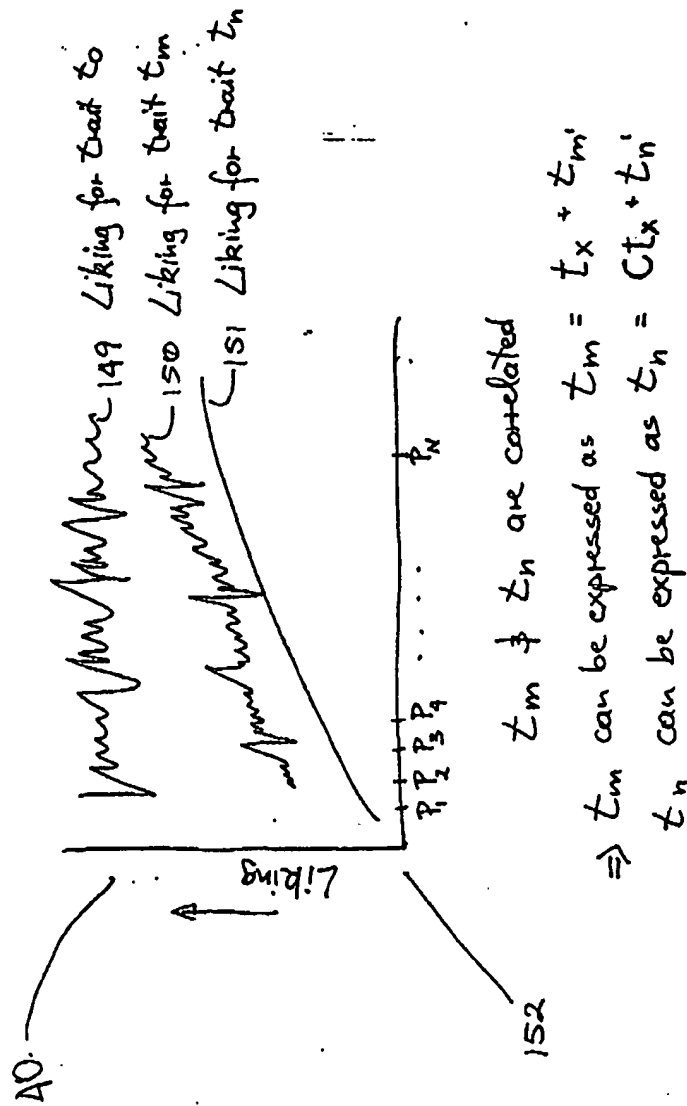 40
149 Liking for trait t₀
150 Liking for trait tₘ
151 Liking for trait tₙ
Liking
P₁ P₂ P₃ P₄ . . . . Pₙ
152
tₘ & tₙ are correlated
⇒ tₘ can be expressed as tₘ = tₓ + tₘ'
tₙ can be expressed as tₙ = Ctₓ + tₙ'